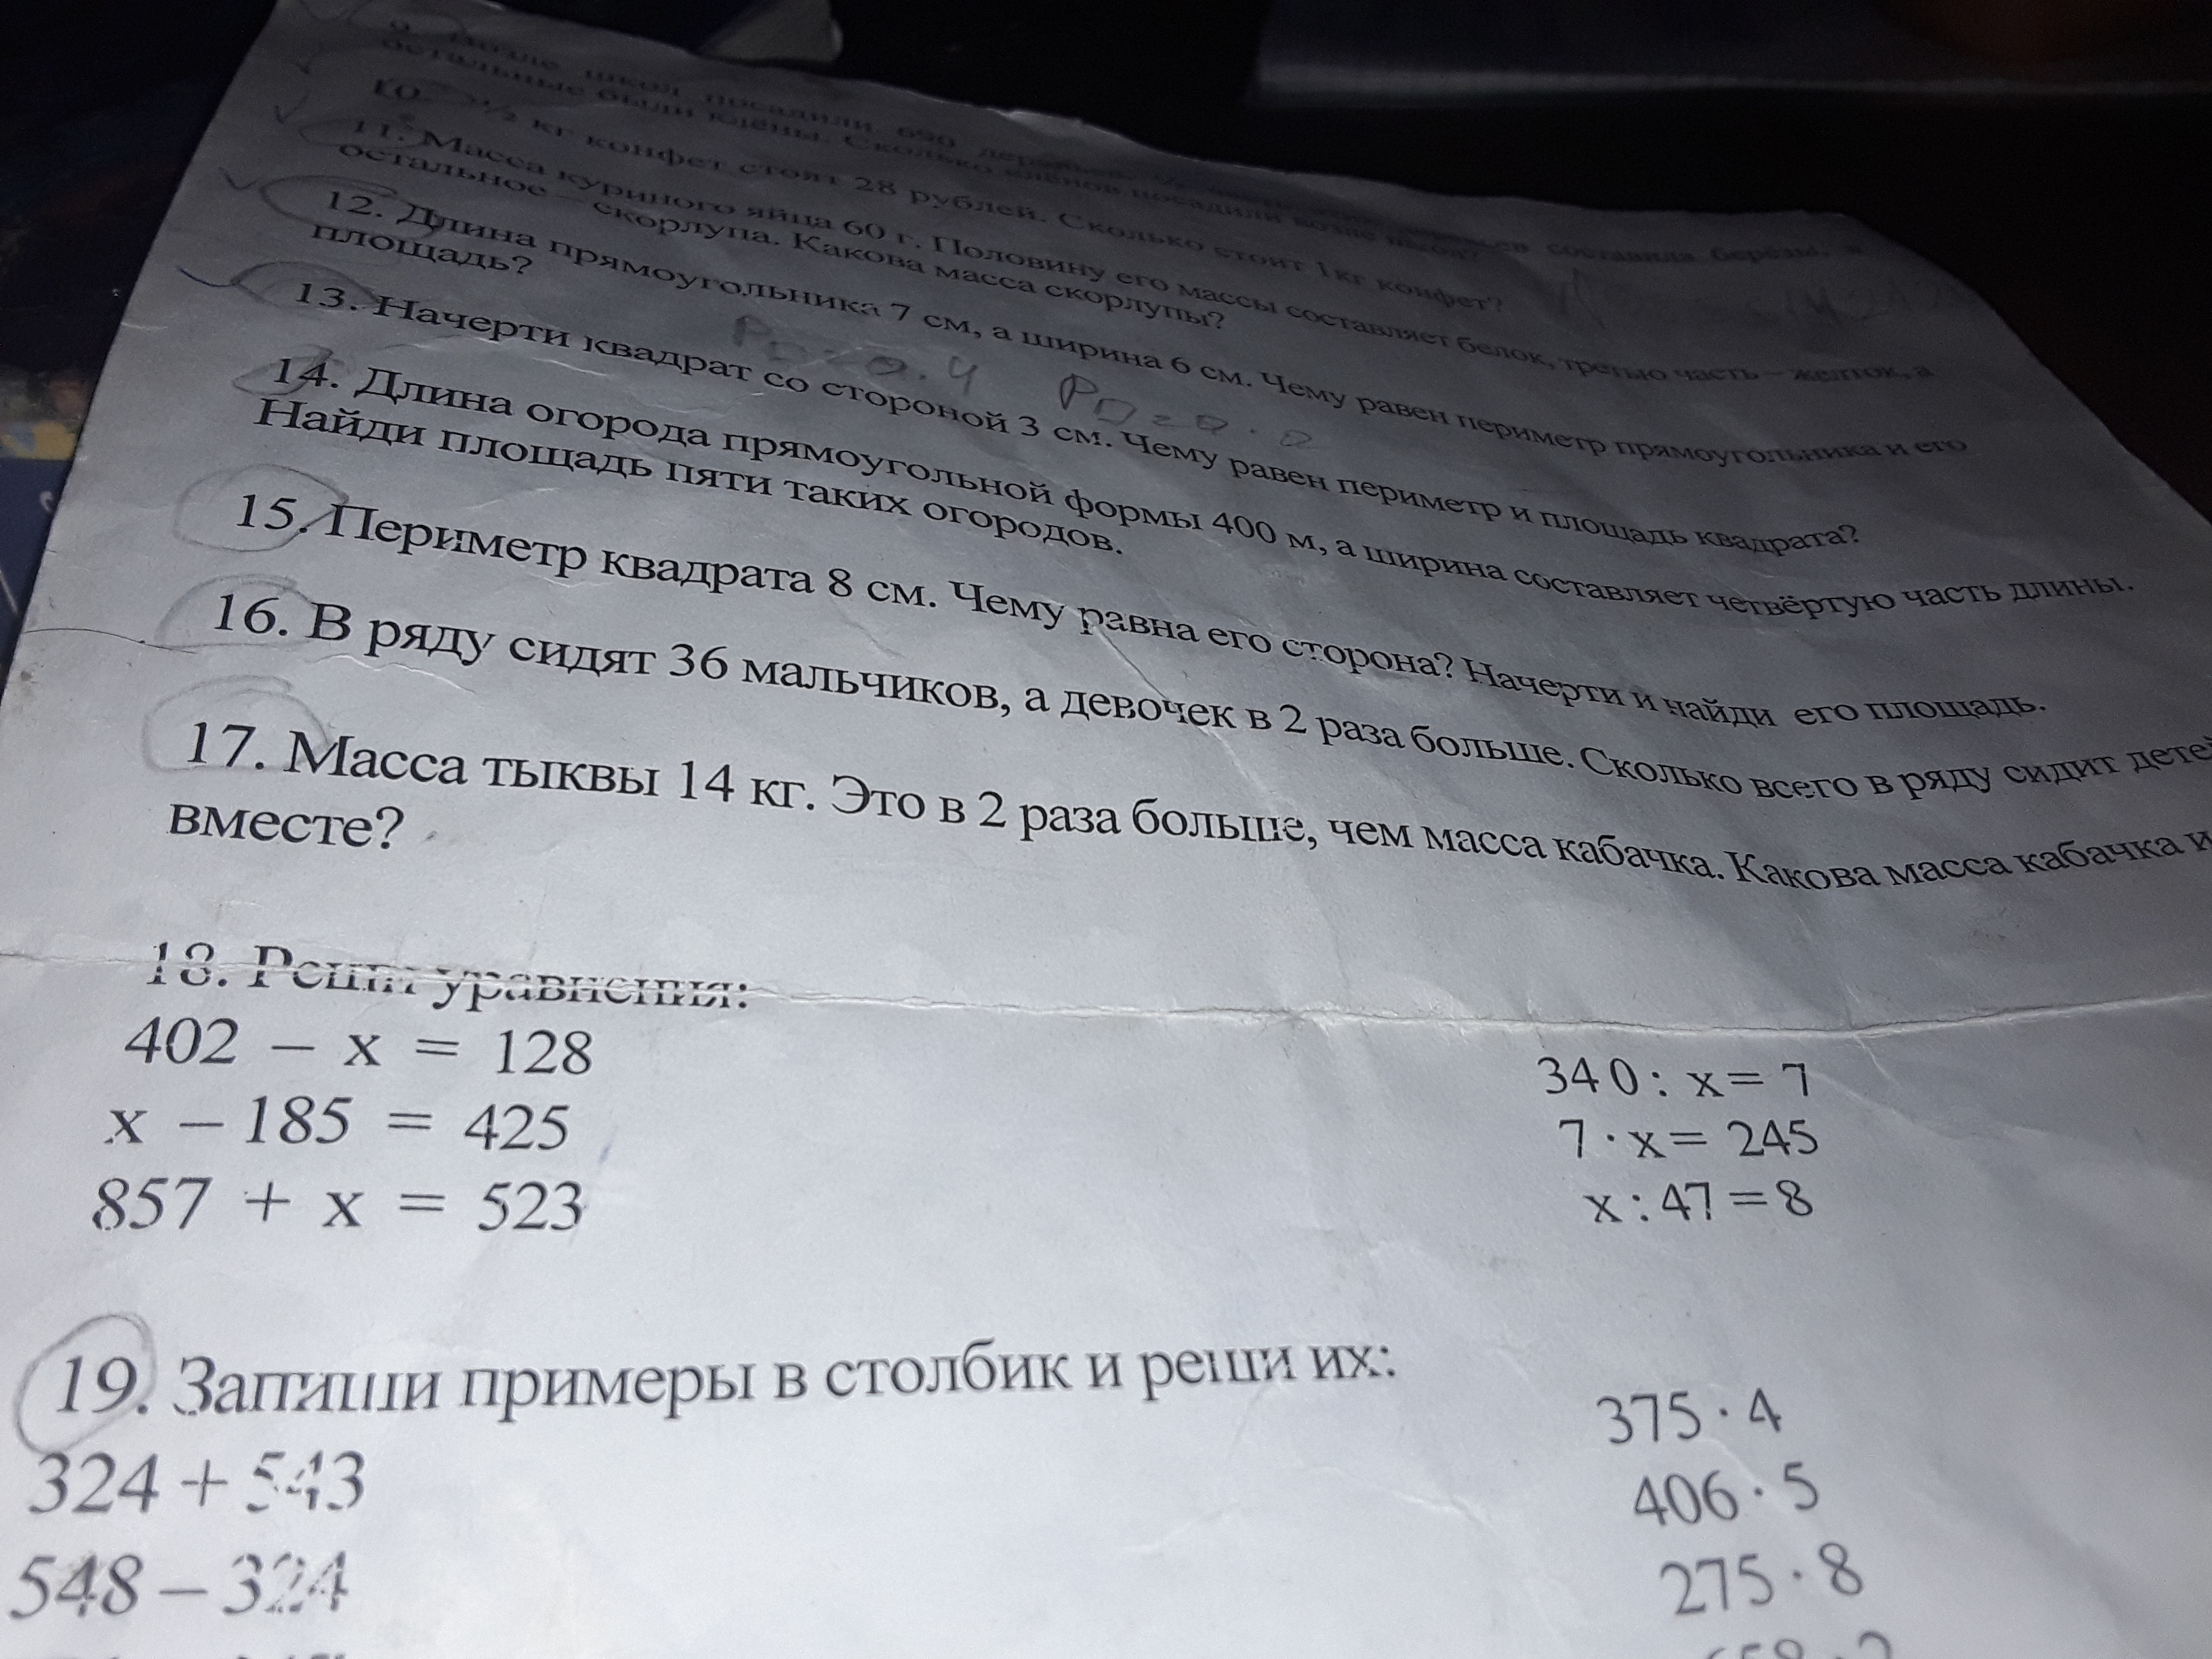 9. Возле школ посадили 690
остальные были клёны. Сколько клёнов посадили возле школ?
10. ½ кг конфет стоят 28 рублей. Сколько стоит 1кг конфет?
11. Масса куриного яйца 60 г. Половину его массы составляет белок, третью часть – желток, а
остальное – скорлупа. Какова масса скорлупы?
12. Длина прямоугольника 7 см, а ширина 6 см. Чему равен периметр прямоугольника и его
площадь?
13. Начерти квадрат со стороной 3 см. Чему равен периметр и площадь квадрата?
14. Длина огорода прямоугольной формы 400 м, а ширина составляет четвёртую часть длины.
Найди площадь пяти таких огородов.
15. Периметр квадрата 8 см. Чему равна его сторона? Начерти и найди его площадь.
16. В ряду сидят 36 мальчиков, а девочек в 2 раза больше. Сколько всего в ряду сидит дете
17. Масса тыквы 14 кг. Это в 2 раза больше, чем масса кабачка. Какова масса кабачка и
вместе?
18. Реши уравнения:
402 – x = 128
x – 185 = 425
857 + x = 523
340 : x = 7
7 · x = 245
x : 47 = 8
19. Запиши примеры в столбик и реши их:
324 + 543
548 – 324
375 · 4
406 · 5
275 · 8